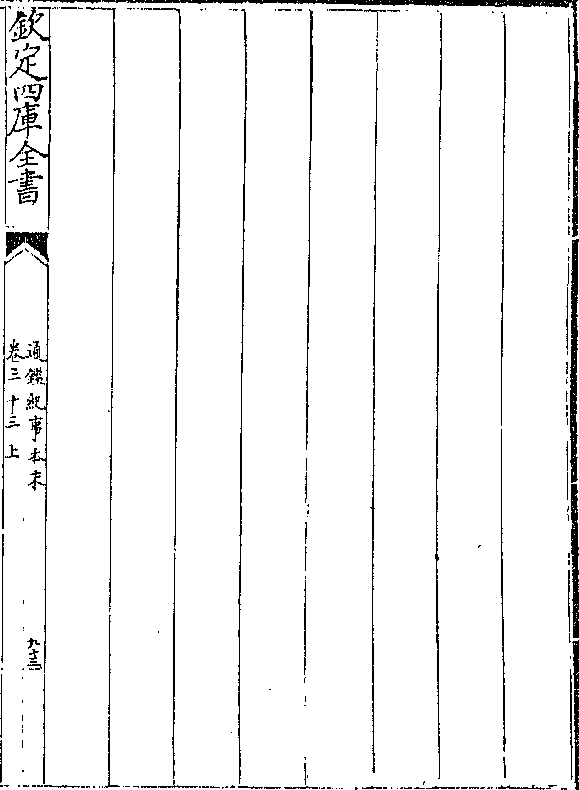 欽定四庫全書
通鑑紀事本末
卷三十三上
九十三